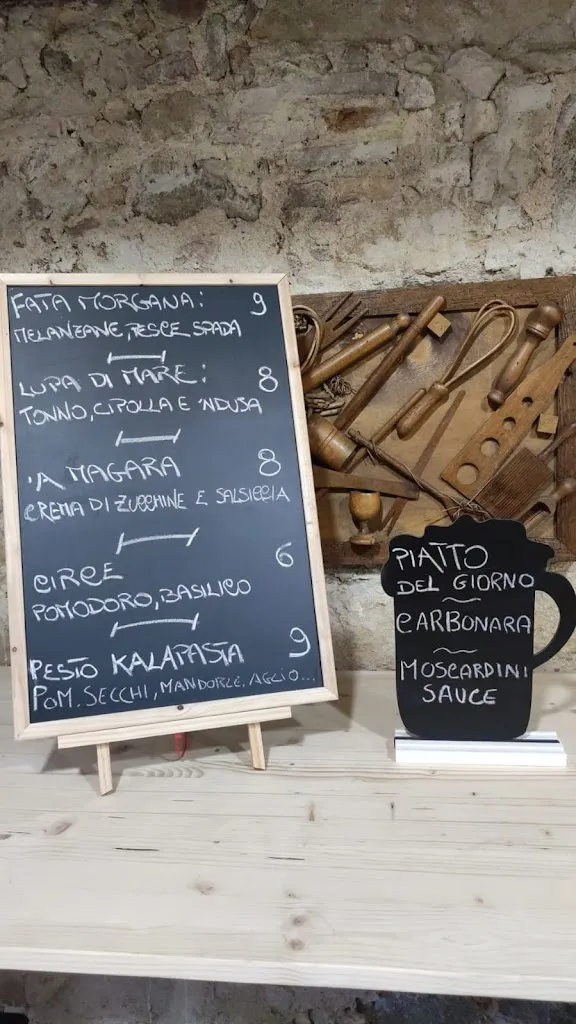 FATA MORGANA: 9
MELANZANE, PESCE SPADA
LUPA DI MARE: 8
TONNO, CIPOLLA E 'NDUSA
'A MAGARA 8
CREMA DI ZUCCHINE E SALSICCIA
CIRCE 6
POMODORO, BASILICO
PESTO KALAPASTA 9
POM. SECCHI, MANDORLE, AGLIO...
PIATTO
DEL GIORNO
CARBONARA
MOSCARDINI
SAUCE